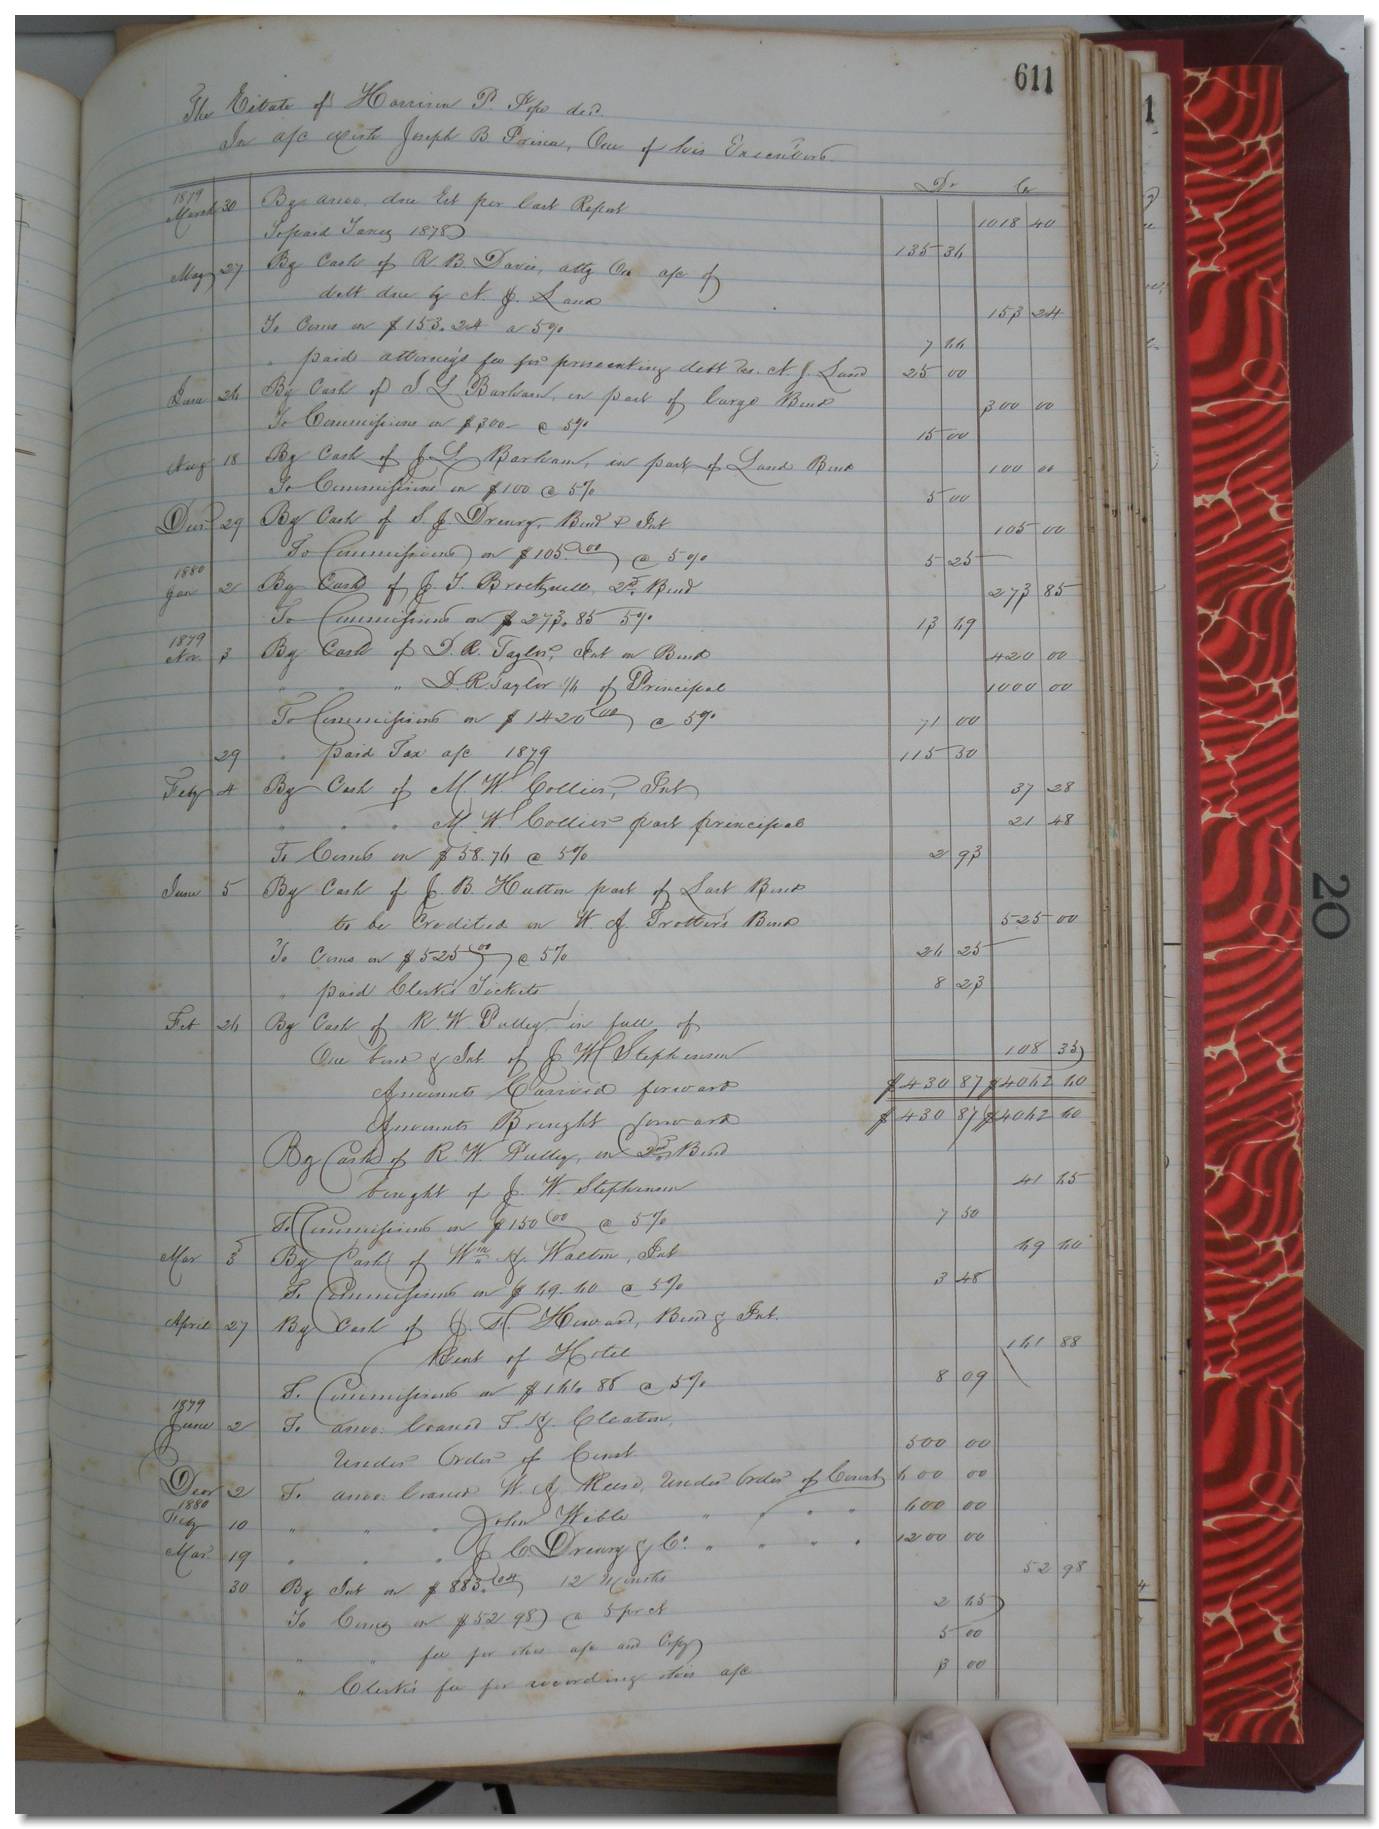 611
The Estate of Harrison P. Pope decd.
In a/c with Joseph B Prince, One of his Executors
Dr Cr
1879
March 30 By amo. due Est per last Report 1018 40
To paid Taxes 1878 135 36
May 27 By Cash of R. B. Davis, atty On a/c of
debt due by N. J. Land 153 24
To Coms on $153.24 a 5% 7 66
" paid attorney's fee for prosecuting debt vs. N. J. Land 25 00
June 26 By Cash of J L Barham, in part of large Bond 300 00
To Commissions on $300- @ 5% 15 00
Aug 18 By Cash of J L Barham, in part of Land Bond 100 00
To Commissions on $100 @ 5% 5 00
Decr 29 By Cash of S. J. Drewry, Bond & Int 105 00
To Commissions on $105.00 @ 5% 5 25
1880
Jan 2 By Cash of J. T. Brockwell, 2d. Bond 273 85
To Commissions on $273.85 5% 13 69
1879
Nov. 3 By Cash of D. R. Taylor, Int on Bond 420 00
" " " D. R. Taylor 1/6 of Principal 1000 00
To Commissions on $1420 00 @ 5% 71 00
29 " paid Tax a/c 1879 115 50
Feby 4 By Cash of M. W. Collier, Int 37 28
" " " M. W. Collier part principal 21 48
To Coms on $58.76 @ 5% 2 93
June 5 By Cash of J. B. Hutton part of Last Bond
to be Credited on W. J. Trotter's Bond 525 00
To Coms on $525 00 @ 5% 26 25
" paid Clerk's Tickets 8 23
Feb 26 By Cash of R W Pulley in full of
One bond & Int of J W Stephenson 108 35
Amounts Carried forward $430 87 $4062 60
Amounts Brought forward $430 87 $4062 60
By Cash of R. W. Pulley, on 2nd Bond
bought of J. W. Stephenson 41 65
To Commissions on $150 00 @ 5% 7 50
Mar 3 By Cash of Wm H. Walton, Int 69 60
To Commissions on $69.60 @ 5% 3 48
April 27 By Cash of J. H. Howard, Bond & Int.
Rent of Hotel 161 88
To Commissions on $161.88 @ 5% 8 09
1879
June 2 To amo: loaned T. H. Cleaton,
Under Order of Court 500 00
Decr 2 To amo: loaned W. J. Reese, Under Order of Court 600 00
1880
Feby 10 " " " John Wible " " " " 600 00
Mar 19 " " " J. C. Drewry & Co. " " " " 1200 00
30 By Int on $883.04 12 Months 52 98
To Coms on $52 98 @ 5 pr ct 2 65
" " fee for this a/c and Copy 5 00
" Clerk's fee for recording this a/c 3 00
1
20